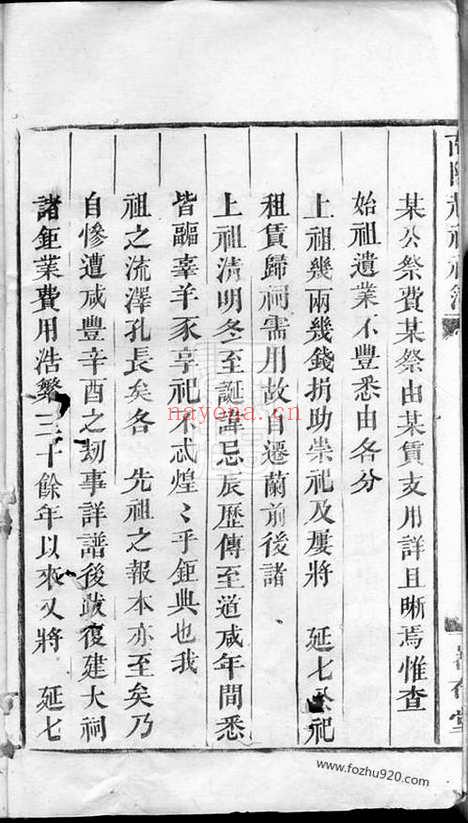 某公祭費某祭由某賃支用詳且晰焉惟查
始祖遺業不豐悉由各分
上祖幾兩幾錢捐助崇祀及屢將 延七祀
租賃歸祠需用故自遷蘭前後諸
上祖清明冬至誕諱忌辰歷傳至道咸年間悉
皆羊豕享祀不忒煌〻乎鉅典也我
祖之流澤孔長矣各 先祖之報本亦至矣乃
自慘遭咸豐辛酉之刼事詳譜後跋復建大祠
諸鉅業費用浩繁三十餘年以來又將 延七
nayona.cn
www.fozhu920.com